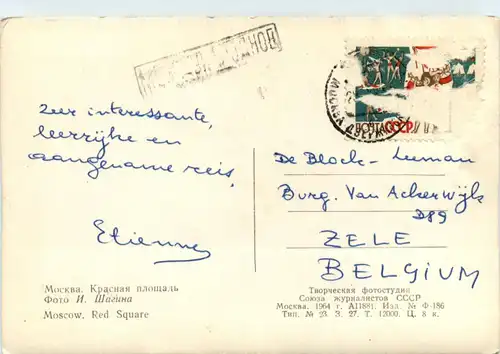 ПОЧТА СССР
Zeer interessante,
leerrijke en
aangename reis,
Etienne
De Block-Leeman
Burg. Van Ackerwijk
D89
ZELE
BELGIUM
Москва. Красная площадь
Фото И. Шагина
Moscow. Red Square
Творческая фотостудия
Союза журналистов СССР
Москва. 1964 г. А11881. Изд. № Ф-186
Тип. № 23 З. 27. Т. 12000. Ц. 8 к.